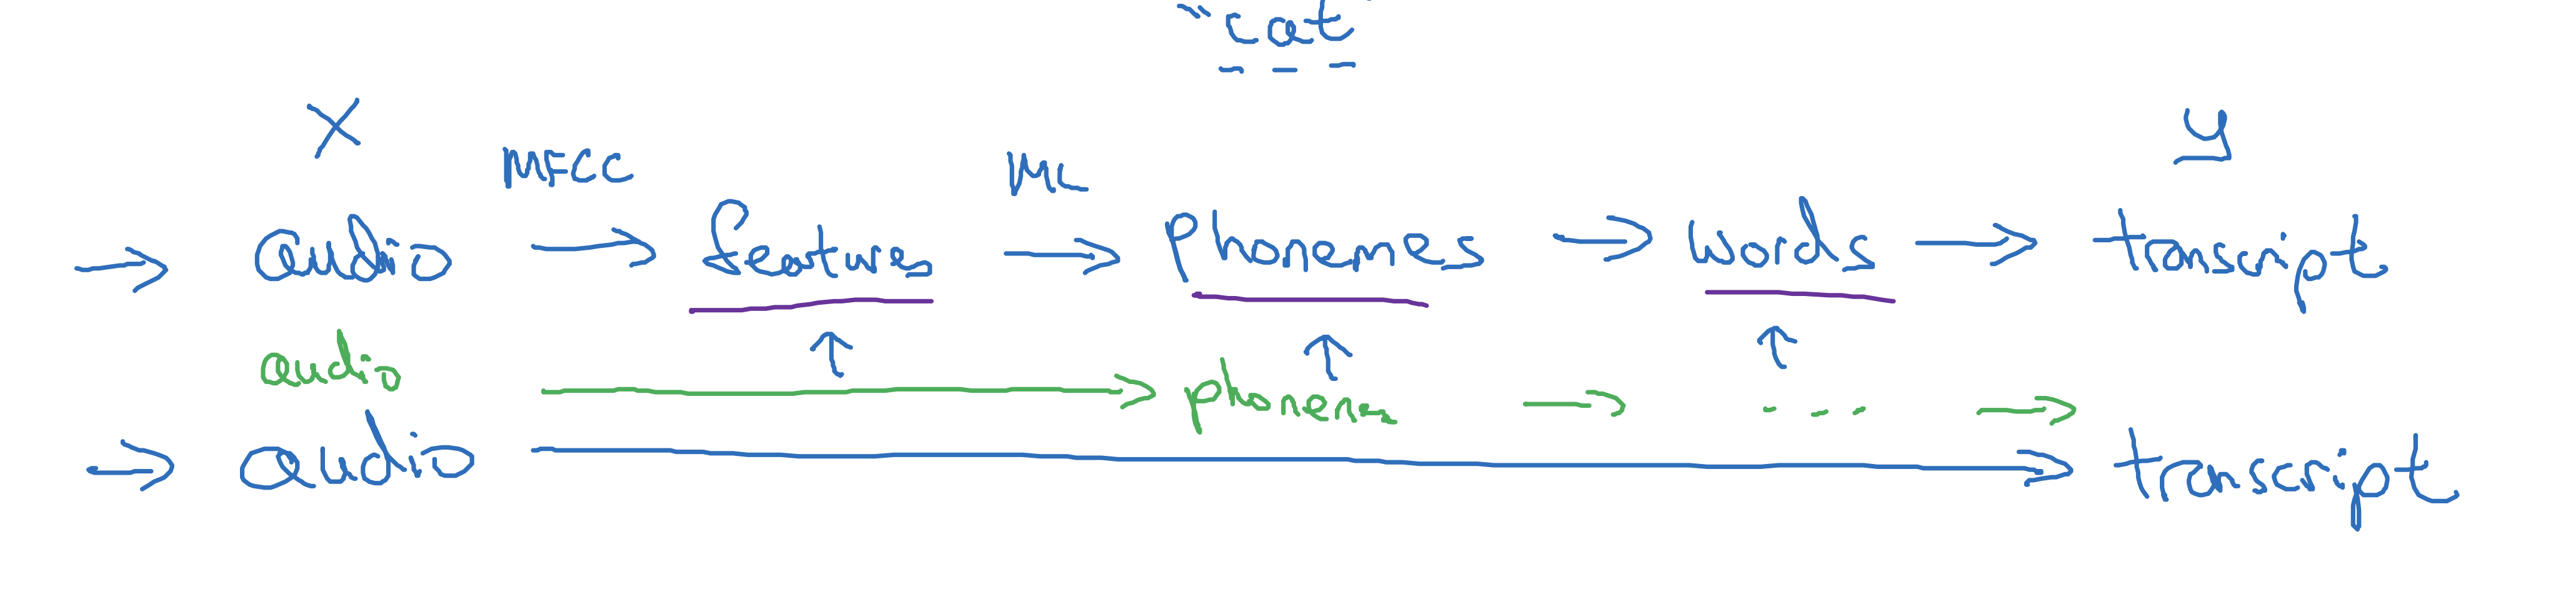 "cat"
X y
MFCC ML
→ audio → features → Phonemes → words → transcript
audio → phonem → ... →
→ audio → transcript